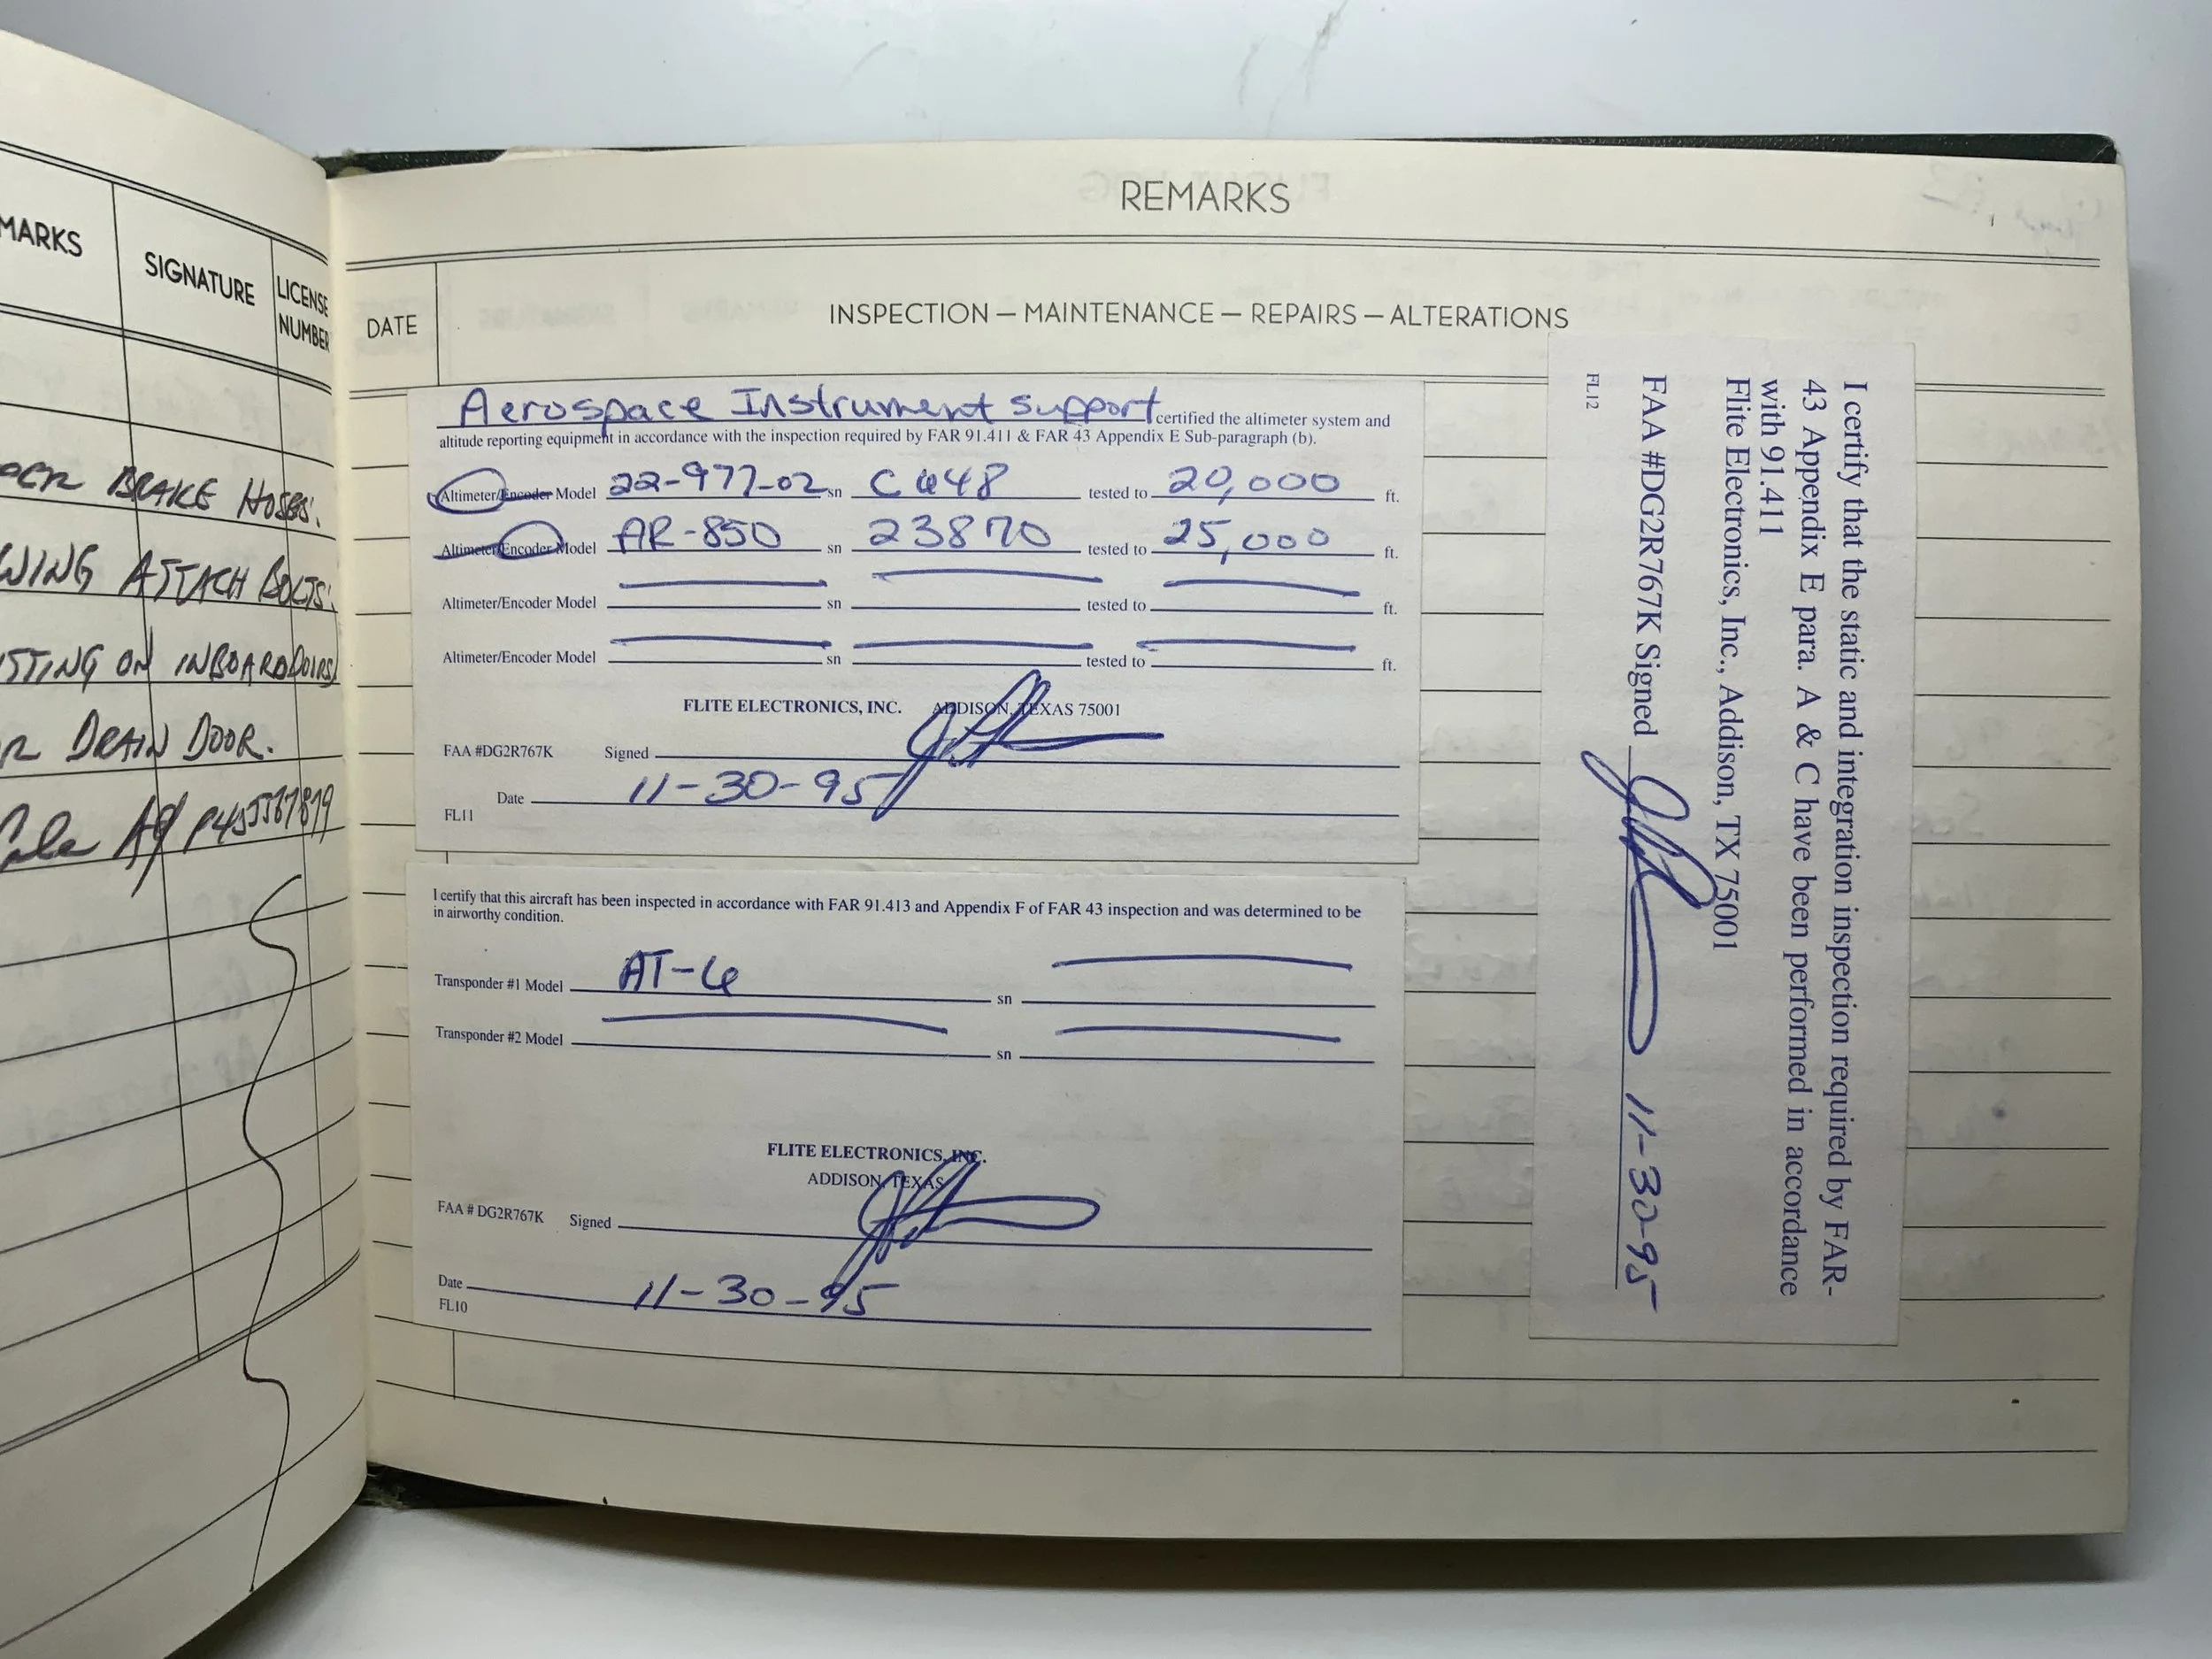 MARKS
SIGNATURE
LICENSE
NUMBER
BRAKE HOSES.
WING ATTACH BOLTS.
ON INBOARD DOORS
DRAIN DOOR.
REMARKS
DATE
INSPECTION — MAINTENANCE — REPAIRS — ALTERATIONS
Aerospace Instrument support certified the altimeter system and
altitude reporting equipment in accordance with the inspection required by FAR 91.411 & FAR 43 Appendix E Sub-paragraph (b).
Altimeter/Encoder Model 22-977-02 sn C648 tested to 20,000 ft.
Altimeter/Encoder Model AR-850 sn 23870 tested to 25,000 ft.
Altimeter/Encoder Model sn tested to ft.
Altimeter/Encoder Model sn tested to ft.
FLITE ELECTRONICS, INC. ADDISON, TEXAS 75001
FAA #DG2R767K Signed
Date 11-30-95
FL11
I certify that this aircraft has been inspected in accordance with FAR 91.413 and Appendix F of FAR 43 inspection and was determined to be
in airworthy condition.
Transponder #1 Model AT-6 sn
Transponder #2 Model sn
FLITE ELECTRONICS, INC.
ADDISON, TEXAS
FAA # DG2R767K Signed
Date 11-30-95
FL10
I certify that the static and integration inspection required by FAR-
43 Appendix E para. A & C have been performed in accordance
with 91.411
Flite Electronics, Inc., Addison, TX 75001
FAA #DG2R767K Signed 11-30-95
FL12